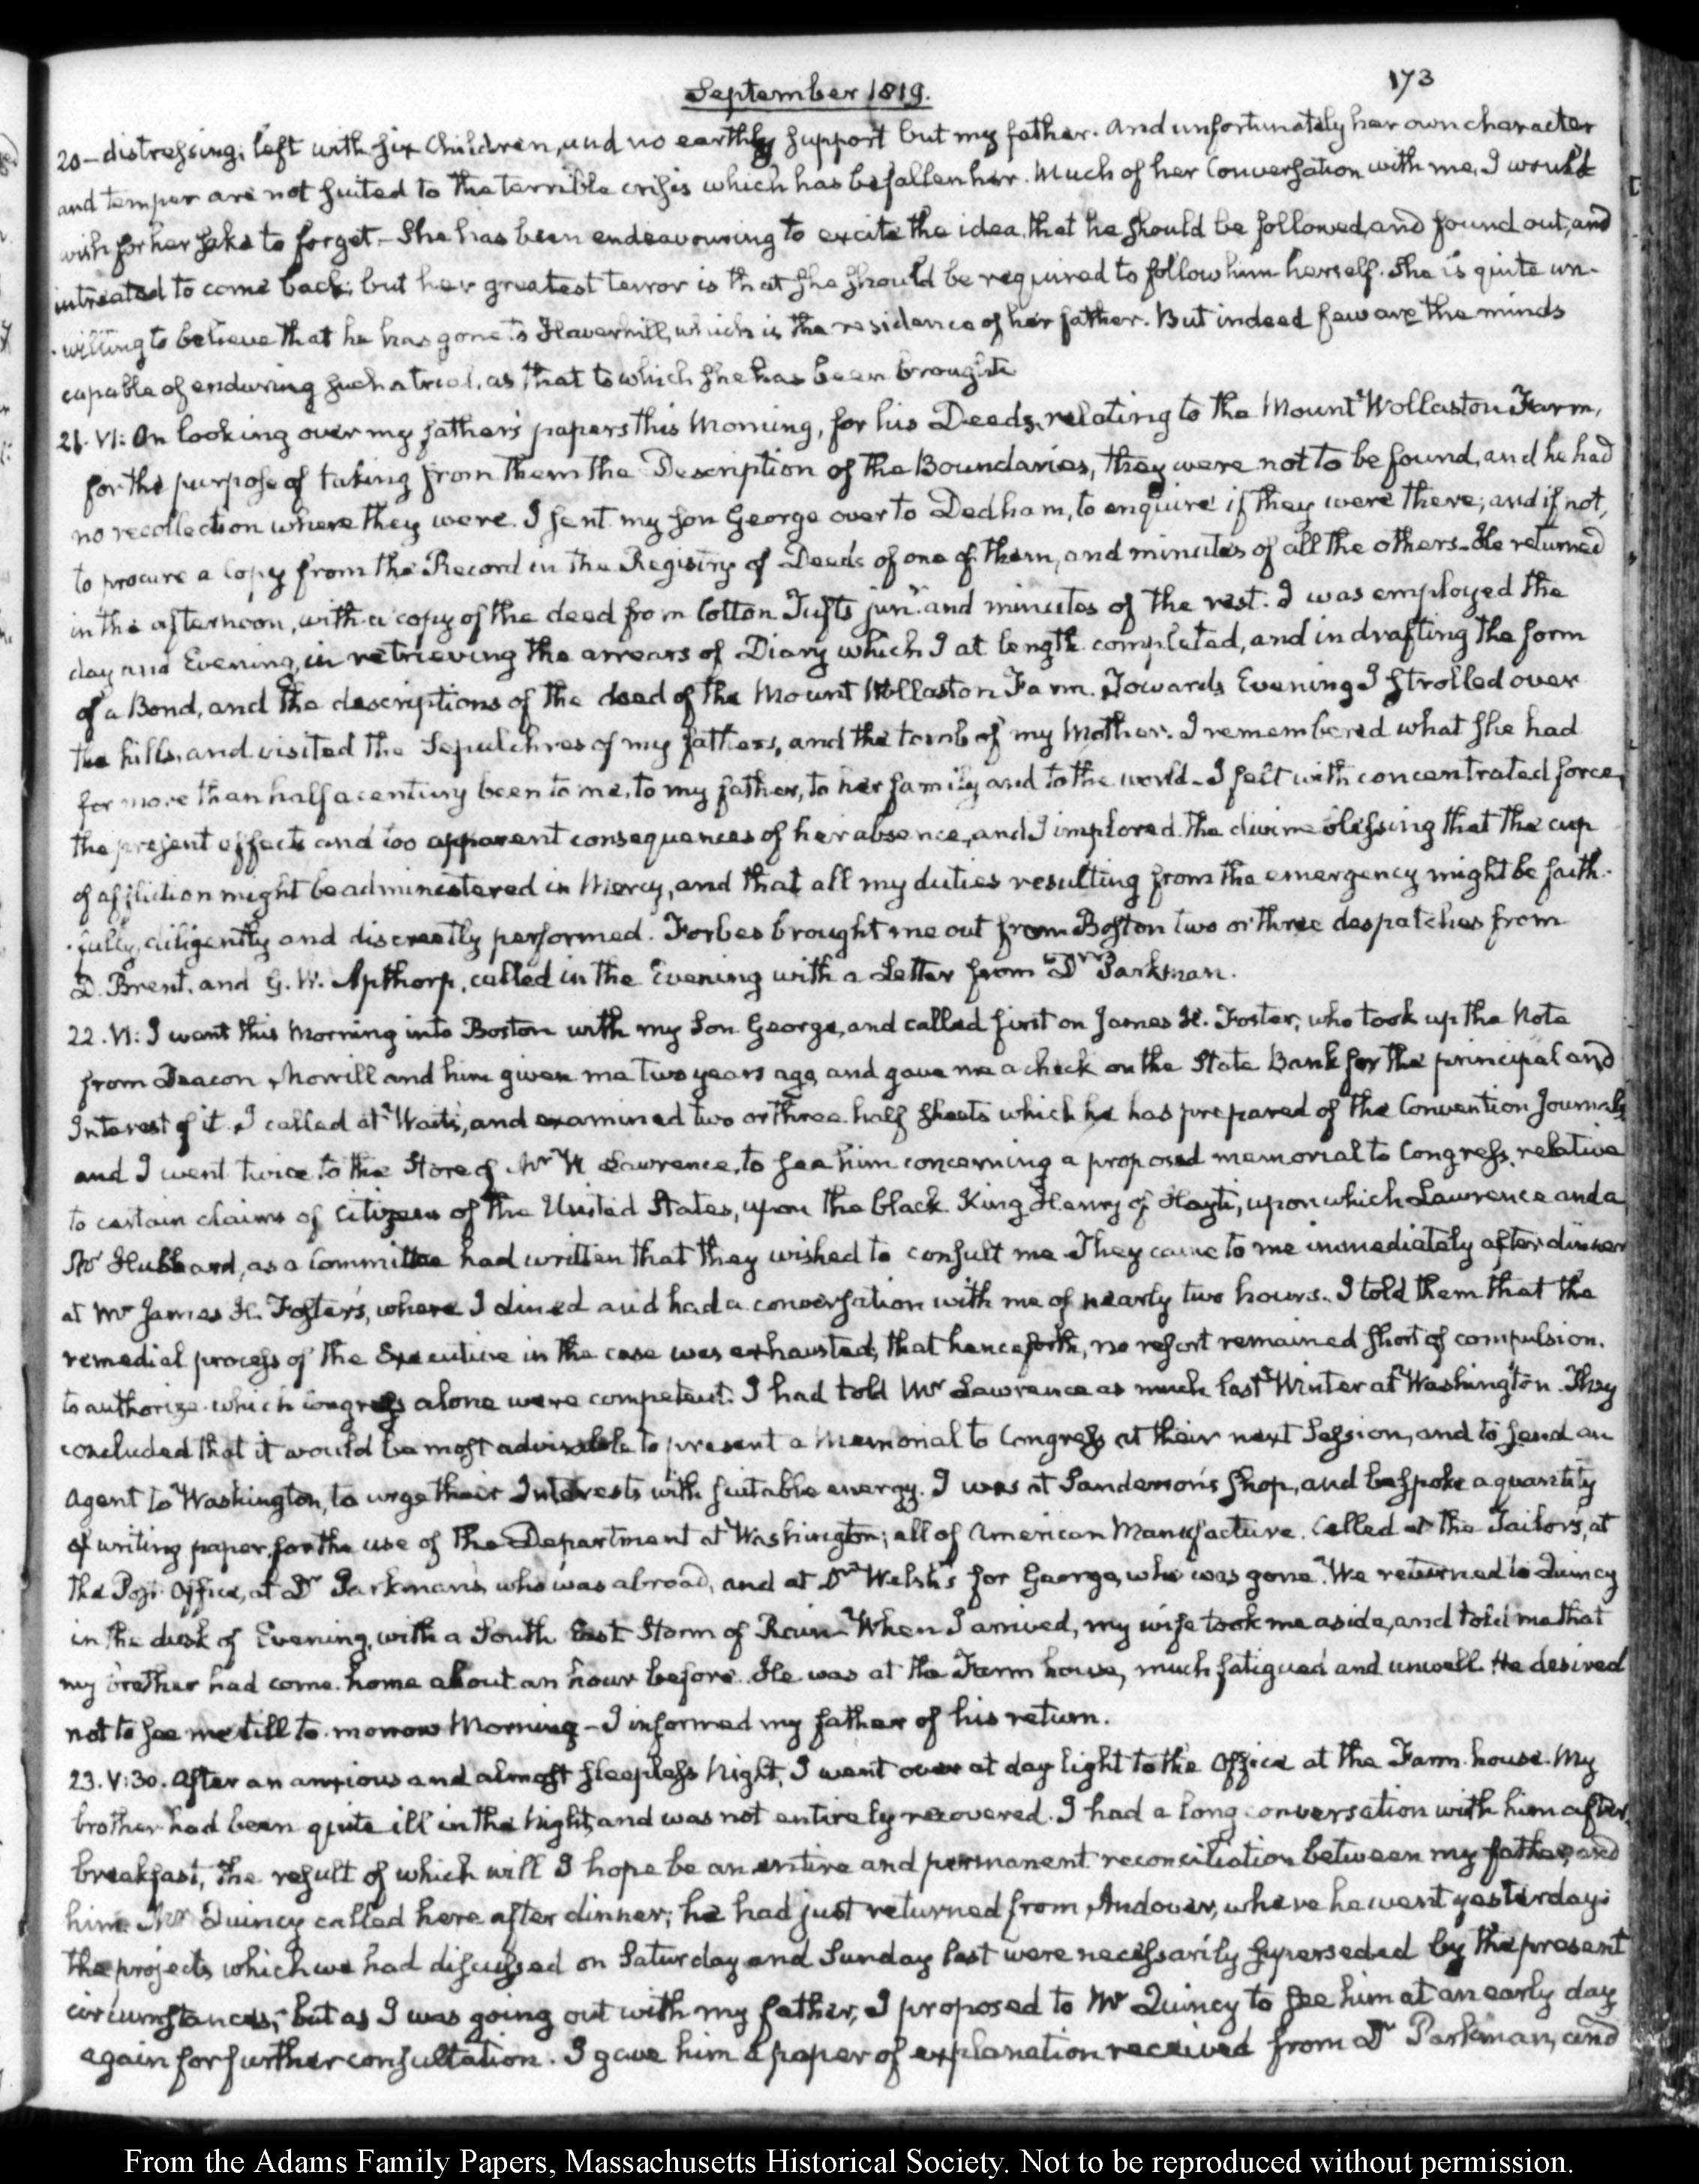 September 1819.
173
20 – distressing; left with six Children, and no earthly support but my father. And unfortunately her own character
and temper are not suited to the terrible crisis which has befallen her. Much of her Conversation with me, I would
wish for her sake to forget – She has been endeavouring to excite the idea, that he should be followed, and found out, and
intreated to come back; but her greatest terror is that she should be required to follow him herself. She is quite un-
-willing to believe that he has gone to Haverhill, which is the residence of her father. But indeed few are the minds
capable of enduring such a trial, as that to which she has been brought.
21. VI: On looking over my father's papers this Morning, for his Deeds, relating to the Mount Wollaston Farm,
for the purpose of taking from them the Description of the Boundaries, they were not to be found, and he had
no recollection where they were. I sent my son George over to Dedham, to enquire if they were there; and if not,
to procure a Copy from the Record in the Registry of Deeds of one of them, and minutes of all the others – He returned
in the afternoon, with a copy of the deed from Cotton Tufts junr. and minutes of the rest. I was employed the
day and Evening, in retrieving the arrears of Diary which I at length completed, and in drafting the form
of a Bond, and the descriptions of the deed of the Mount Wollaston Farm. Towards Evening I strolled over
the hills, and visited the Sepulchres of my fathers, and the tomb of my Mother. I remembered what she had
for more than half a century been to me, to my father, to her family and to the world – I felt with concentrated force,
the present effects and too apparent consequences of her absence, and I implored the divine blessing that the cup
of affliction might be administered in Mercy, and that all my duties resulting from the emergency might be faith-
-fully, diligently and discreetly performed. Forbes brought me out from Boston two or three despatches from
D. Brent, and G. W. Apthorp, called in the Evening with a Letter from Dr Parkman.
22. VI: I went this Morning into Boston with my Son George, and called first on James H. Foster, who took up the Note
from Deacon Morrill and him given me two years ago, and gave me a check on the State Bank for the principal and
Interest of it. I called at Wait's, and examined two or three half sheets which he has prepared of the Convention Journals,
and I went twice to the Store of Mr W Lawrence, to see him concerning a proposed memorial to Congress, relative
to certain claims of Citizens of the United States, upon the black King Henry of Hayti, upon which Lawrence and a
Mr Hubbard, as a Committee had written that they wished to consult me. They came to me immediately after dinner
at Mr James H. Foster's, where I dined and had a conversation with me of nearly two hours. I told them that the
remedial process of the Executive in the case was exhausted; that henceforth, no resort remained short of compulsion.
to authorize which Congress alone were competent. I had told Mr Lawrence as much last Winter at Washington. They
concluded that it would be most advisable to present a Memorial to Congress at their next Session, and to send an
Agent to Washington, to urge their Interests with suitable energy. I was at Sanderson's shop, and bespoke a quantity
of writing paper, for the use of the Department at Washington; all of American Manufacture. Called at the Tailor's, at
the Post Office, at Dr Parkman's who was abroad, and at Dr Welsh's for George, who was gone. We returned to Quincy
in the dusk of Evening, with a South East Storm of Rain – When I arrived, my wife took me aside, and told me that
my brother had come home about an hour before. He was at the Farm house, much fatigued and unwell. He desired
not to see me till to-morrow Morning – I informed my father of his return.
23. V:30. After an anxious and almost sleepless Night, I went over at day light to the Office at the Farm house. My
brother had been quite ill in the Night, and was not entirely recovered. I had a long conversation with him after
breakfast, the result of which will I hope be an entire and permanent reconciliation between my father, and
him. Mr Quincy called here after dinner; he had just returned from Andover, where he went yesterday:
the projects which we had discussed on Saturday and Sunday last were necessarily superseded by the present
circumstances; but as I was going out with my father, I proposed to Mr Quincy to see him at an early day
again for further consultation. I gave him a paper of explanation received from Dr Parkman, and
From the Adams Family Papers, Massachusetts Historical Society. Not to be reproduced without permission.